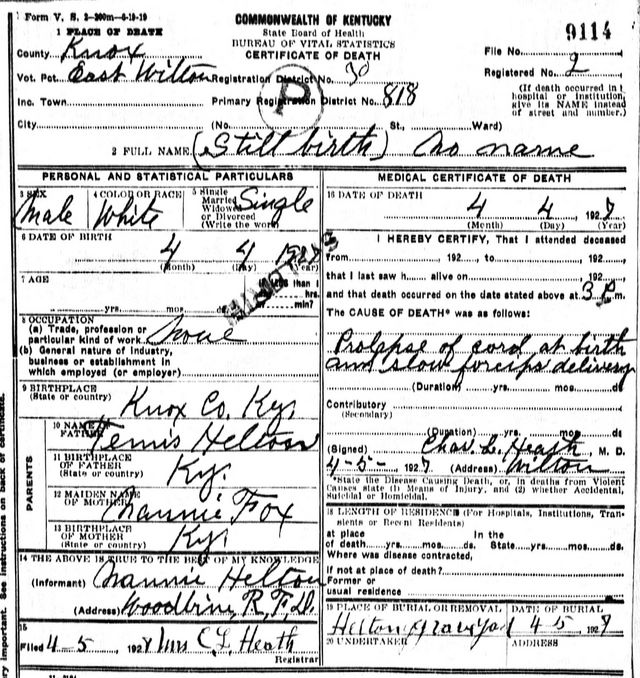 Form V. S. 2-200m-6-19-19
COMMONWEALTH OF KENTUCKY
State Board of Health
BUREAU OF VITAL STATISTICS
CERTIFICATE OF DEATH
9114
1 PLACE OF DEATH
County Knox
File No.
Vot. Pct. East Wilton Registration District No. 30
Registered No. 2
Inc. Town Primary Registration District No. 818
(If death occurred in hospital or institution, give its NAME instead of street and number.)
P
City (No. St., Ward)
2 FULL NAME (Still birth) No name
PERSONAL AND STATISTICAL PARTICULARS
3 SEX
Male
4 COLOR OR RACE
White
5 Single
Married
Widowed
or Divorced
(Write the word)
Single
6 DATE OF BIRTH
4 4 1927
(Month) (Day) (Year)
7 AGE
yrs. mos. ds.
less than 1
hrs.
min?
8 OCCUPATION
(a) Trade, profession or
particular kind of work None
(b) General nature of industry,
business or establishment in
which employed (or employer)
9 BIRTHPLACE
(State or country)
Knox Co. Ky.
PARENTS
10 NAME OF
FATHER
Helton
11 BIRTHPLACE
OF FATHER
(State or country)
Ky.
12 MAIDEN NAME
OF MOTHER
Nannie Fox
13 BIRTHPLACE
OF MOTHER
(State or country)
Ky.
14 THE ABOVE IS TRUE TO THE BEST OF MY KNOWLEDGE
(Informant) Nannie Helton
(Address) Woodbine, R.F.D.
15
Filed 4-5 1927 Mrs C L Heath
Registrar
MEDICAL CERTIFICATE OF DEATH
16 DATE OF DEATH
4 4 1927
(Month) (Day) (Year)
I HEREBY CERTIFY, That I attended deceased
from 192 , to 192
that I last saw h alive on 192
and that death occurred on the date stated above at 3 P m.
The CAUSE OF DEATH* was as follows:
Prolapse of cord at birth
and slow forceps delivery
(Duration) yrs. mos. ds
Contributory
(Secondary)
(Duration) yrs. mos. ds
(Signed) Chas. L. Heath, M. D.
4-5-, 1927 (Address) Wilton
*State the Disease Causing Death, or, in deaths from Violent
Causes state (1) Means of Injury, and (2) whether Accidental,
Suicidal or Homicidal.
18 LENGTH OF RESIDENCE (For Hospitals, Institutions, Tran-
sients or Recent Residents)
at place In the
of death yrs. mos. ds. State yrs. mos. ds.
Where was disease contracted,
if not at place of death?
Former or
usual residence
19 PLACE OF BURIAL OR REMOVAL
Helton Graveya
DATE OF BURIAL
4-5 1927
20 UNDERTAKER
ADDRESS
ry important. See instructions on back of certificate.